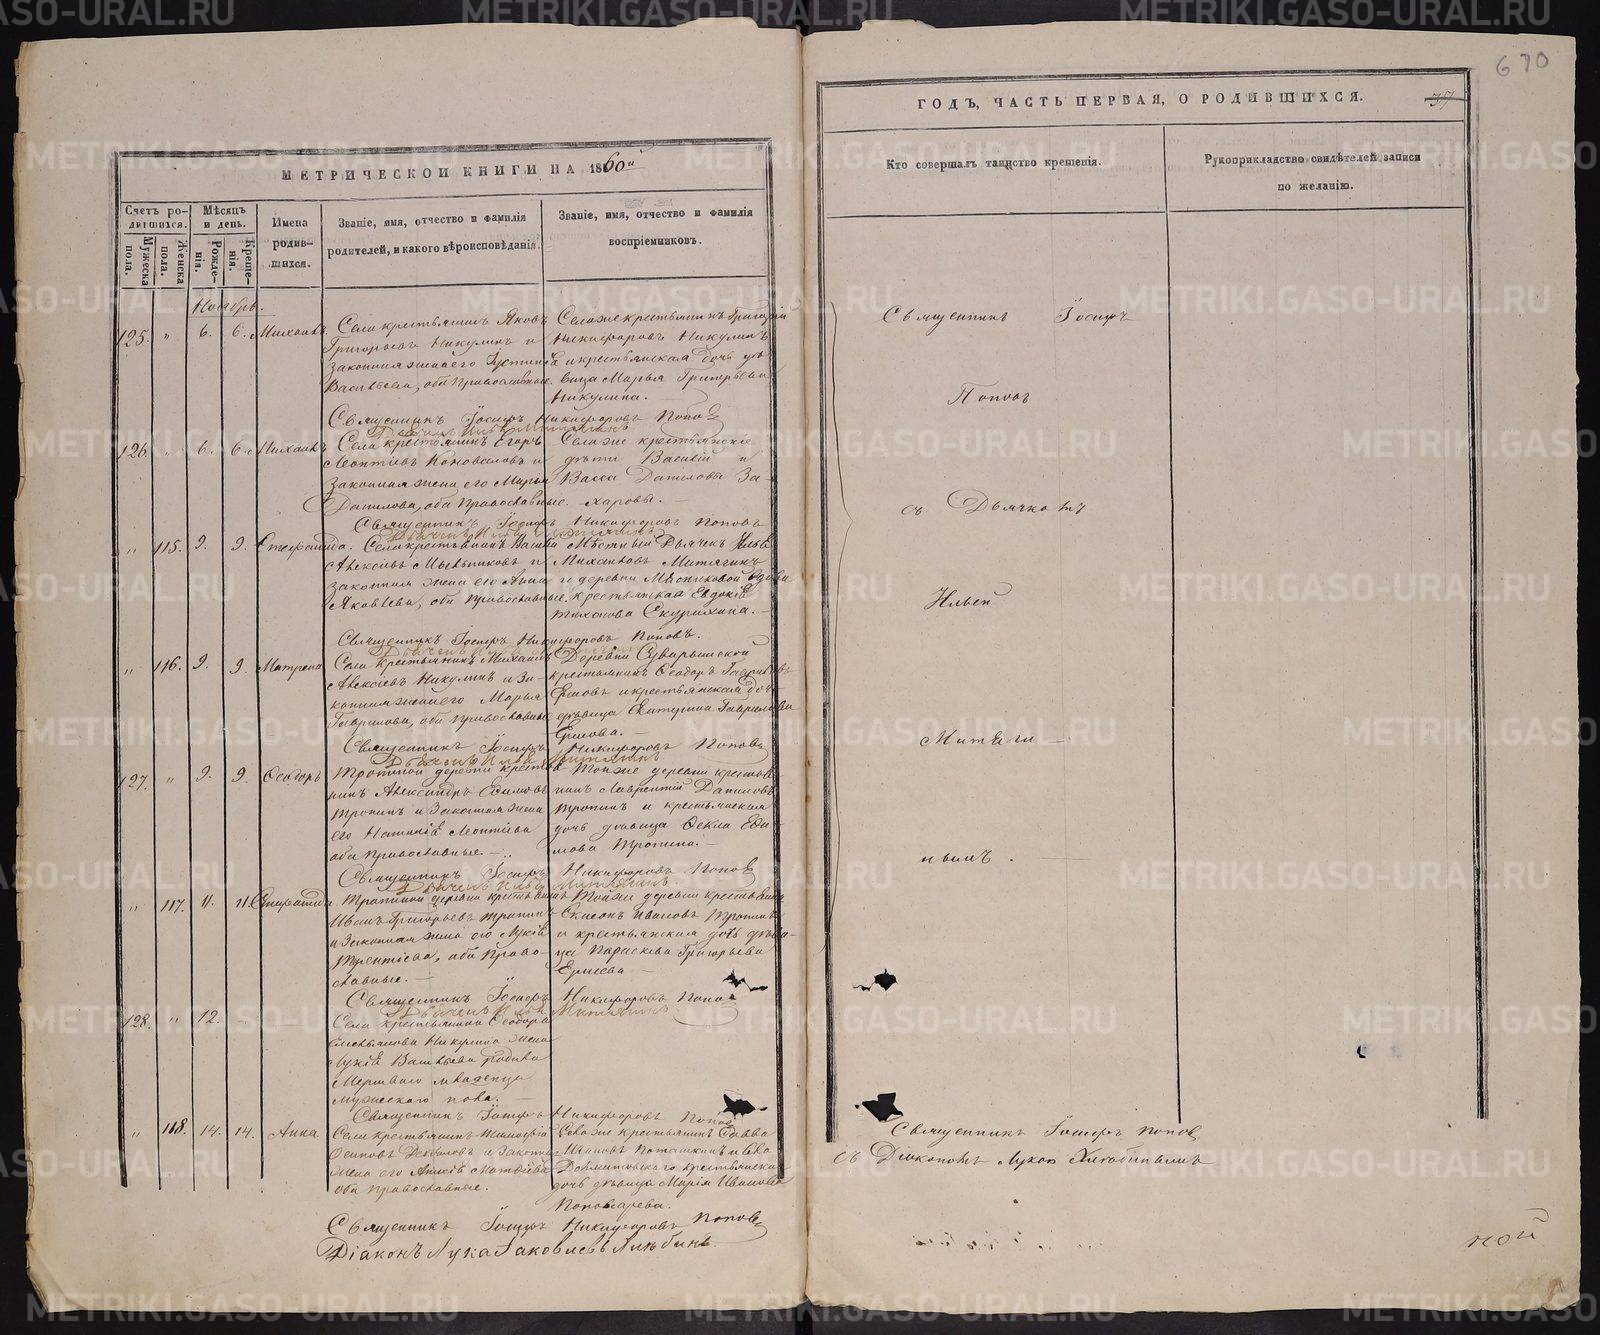 МЕТРИЧЕСКОЙ КНИГИ НА 1860й
Счетъ ро-
дившихся.
Мужеска
пола.
Женска
пола.
Мѣсяцъ
и день.
Рожде-
нія.
Креще-
нія.
Имена
родив-
шихся.
Званіе, имя, отчество и фамилія
родителей, и какого вѣроисповѣданія.
Званіе, имя, отчество и фамилія
воспріемниковъ.
Ноябрь.
125. " 6. 6. Михаилъ.
Села крестьянинъ Яковъ
Григорьевъ Никулинъ и
законная жена его Густинія
Васильева, оба православные.
Села же крестьянинъ Григорій
Никифоровъ Никулинъ
и крестьянская дочь дѣ-
вица Марья Григорьева
Никулина.
Священникъ Іосифъ Никифоровъ Поповъ
Дьячекъ Илья Митягинъ
126. " 6. 6. Михаилъ
Села крестьянинъ Егоръ
Леонтіевъ Коноваловъ и
законная жена его Марья
Данилова, оба православные.
Села же крестьянскіе
дѣти Василій и
Васса Даниловы За-
харовы.
Священникъ Іосифъ Никифоровъ Поповъ
Дьячекъ Илья Митягинъ
" 115. 9. 9. Стефанида.
Села крестьянинъ Василій
Алексѣевъ Мыльниковъ и
законная жена его Анна
Яковлева, оба православные.
Мѣстный Дьячекъ Илья
Михайловъ Митягинъ
и деревни Мѣсниковой вдова
крестьянская Евдокія
Тихонова Скурихина.
Священникъ Іосифъ Никифоровъ Поповъ.
" 116. 9. 9. Матрена
Села крестьянинъ Михаилъ
Алексѣевъ Никулинъ и за-
конная жена его Марья
Гаврилова, оба православные
Деревни Суварышской
крестьянинъ Ѳеодоръ Гавриловъ
Ершовъ и крестьянская дочь
дѣвица Екатерина Гаврилова
Ершова.
Священникъ Іосифъ Никифоровъ Поповъ
Дьячекъ Илья Митягинъ
127. " 9. 9. Ѳеодоръ
Тропиной деревни крестья-
нинъ Александръ Едимовъ
Тропинъ и законная жена
его Наталія Леонтіева
оба православные.
Той же деревни крестья-
нинъ Лаврентій Даниловъ
Тропинъ и крестьянская
дочь дѣвица Ѳекла Еди-
мова Тропина.
Священникъ Іосифъ Никифоровъ Поповъ
Дьячекъ Илья Митягинъ
" 117. 11. 11. Стефанида.
Тропиной деревни крестьянинъ
Иванъ Григорьевъ Тропинъ
и законная жена его Лукія
Терентіева, оба право-
славные.
Той же деревни крестьянинъ
Симеонъ Ивановъ Тропинъ
и крестьянская дочь дѣви-
ца Параскева Григорьева
Ершова
Священникъ Іосифъ Никифоровъ Поповъ
Дьячекъ Илья Митягинъ
128. " 12.
Села крестьянина Ѳеодора
Емельянова Никулина жена
Лукія Васильева родила
мертваго младенца
мужескаго пола.
Священникъ Іосифъ Никифоровъ Поповъ
" 118. 14. 14. Анна.
Села крестьянинъ Тимофей
Осиповъ и законная
жена его Матвѣева
оба православные.
Села же крестьянинъ Савва
Ивановъ Поташкинъ и села
Долматовскаго крестьянская
дочь дѣвица Марія Иванова
Пономарева.
Священникъ Іосифъ Никифоровъ Поповъ
Діаконъ Лука Іаковлевъ Хлѣбинъ.
670
ГОДЪ, ЧАСТЬ ПЕРВАЯ, О РОДИВШИХСЯ.
37
Кто совершалъ таинство крещенія.
Рукоприкладство свидѣтелей записи
по желанію.
Священникъ Іосифъ
Поповъ
съ Дьячкомъ
Ильей
Митяги-
нымъ.
Священникъ Іосифъ Поповъ
съ Діакономъ Лукою Хлѣбинымъ
ной
METRIKI.GASO-URAL.RU